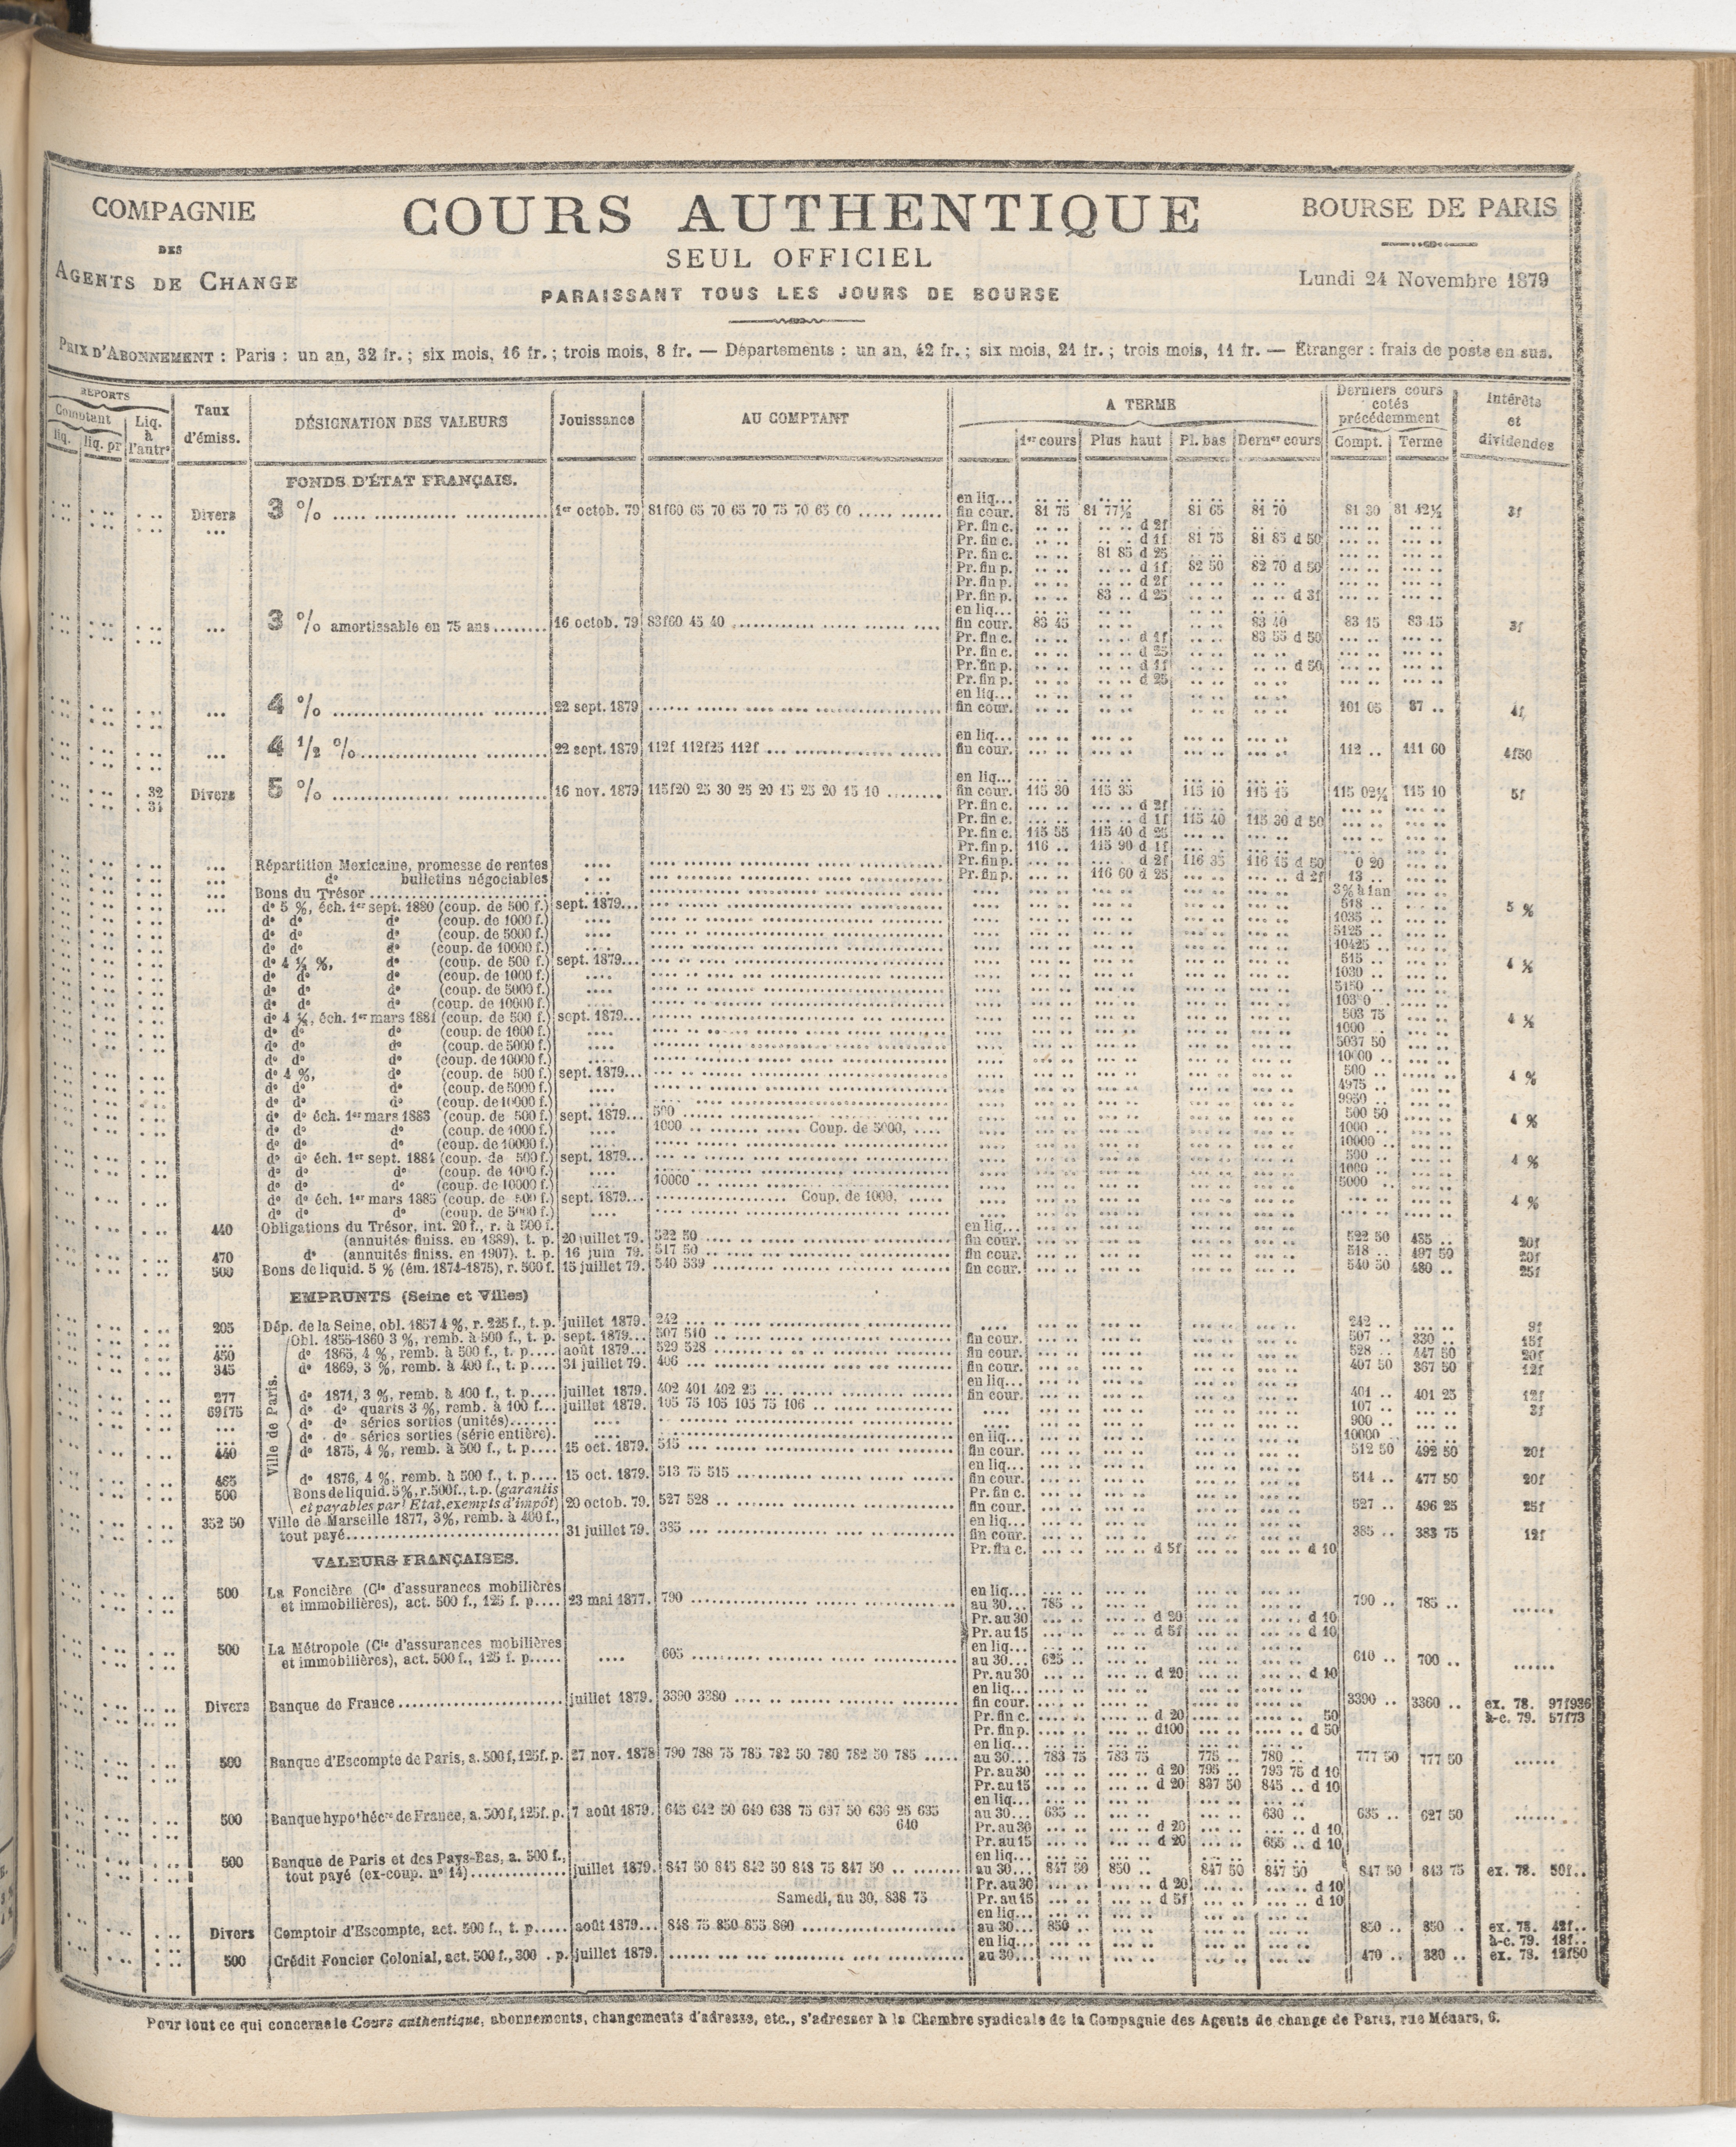 COMPAGNIE
DES
AGENTS DE CHANGE
COURS AUTHENTIQUE
SEUL OFFICIEL
PARAISSANT TOUS LES JOURS DE BOURSE
BOURSE DE PARIS
Lundi 24 Novembre 1879
PRIX D'ABONNEMENT : Paris : un an, 32 fr. ; six mois, 16 fr. ; trois mois, 8 fr. — Départements : un an, 42 fr. ; six mois, 21 fr. ; trois mois, 11 fr. — Étranger : frais de poste en sus.
REPORTS
Comptant
liq. liq. pr
Liq. à l'autre
Taux d'émiss.
DÉSIGNATION DES VALEURS
Jouissance
AU COMPTANT
A TERME
1er cours Plus haut Pl. bas Derner cours
Derniers cours cotés précédemment
Compt. Terme
Intérêts et dividendes
FONDS D'ÉTAT FRANÇAIS.
en liq...
Divers 3 % 1er octob. 79 81f60 65 70 65 70 75 70 65 60 fin cour. 81 75 81 77½ 81 65 81 70 81 30 81 42½ 3f
Pr. fin c. d 2f
Pr. fin c. d 1f 81 75 81 85 d 50
Pr. fin c. 81 85 d 25
Pr. fin p. d 1f 82 50 82 70 d 50
Pr. fin p. d 2f
Pr. fin p. 83 .. d 25 d 3f
en liq...
3 % amortissable en 75 ans 16 octob. 79 83f60 45 40 fin cour. 83 45 83 40 83 15 83 15 3f
Pr. fin c. d 1f 83 55 d 50
Pr. fin c. d 25
Pr. fin p. d 1f d 50
Pr. fin p. d 25
en liq...
4 % 22 sept. 1879 fin cour. 101 05 87 .. 4f
en liq...
4 1/2 % 22 sept. 1879 112f 112f25 112f fin cour. 112 .. 111 60 4f50
en liq...
. 32 Divers 5 % 16 nov. 1879 115f20 25 30 25 20 15 25 20 15 10 fin cour. 115 30 115 35 115 10 115 15 115 02½ 115 10 5f
. 31 Pr. fin c. d 2f
Pr. fin c. d 1f 115 40 115 30 d 50
Pr. fin c. 115 55 115 40 d 25
Pr. fin p. 116 .. 115 90 d 1f
Répartition Mexicaine, promesse de rentes Pr. fin p. d 2f 116 35 116 15 d 50 0 20
do bulletins négociables Pr. fin p. 116 60 d 25 d 2f 13 ..
Bons du Trésor 3% à 1 an
do 5 %, éch. 1er sept. 1880 (coup. de 500 f.) sept. 1879... 518 .. 5 %
do do do (coup. de 1000 f.) 1035 ..
do do do (coup. de 5000 f.) 5125 ..
do do do (coup. de 10000 f.) 10425 ..
do 4 ½ %, do (coup. de 500 f.) sept. 1879... 515 .. 4 ½
do do do (coup. de 1000 f.) 1030 ..
do do do (coup. de 5000 f.) 5150 ..
do do do (coup. de 10000 f.)
do 4 ½, éch. 1er mars 1881 (coup. de 500 f.) sept. 1879... 503 75 4 ½
do do do (coup. de 1000 f.) 1000 ..
do do do (coup. de 5000 f.) 5037 50
do do do (coup. de 10000 f.) 10000 ..
do 4 %, do (coup. de 500 f.) sept. 1879... 500 .. 4 %
do do do (coup. de 5000 f.) 4975 ..
do do do (coup. de 10000 f.) 9950 ..
do do éch. 1er mars 1883 (coup. de 500 f.) sept. 1879... 500 500 50 4 %
do do do (coup. de 1000 f.) 1000 Coup. de 5000, 1000 ..
do do do (coup. de 10000 f.) 10000 ..
do do éch. 1er sept. 1884 (coup. de 500 f.) sept. 1879... 500 .. 4 %
do do do (coup. de 1000 f.) 1000 ..
do do do (coup. de 10000 f.) 10000 5000 ..
do do éch. 1er mars 1885 (coup. de 500 f.) sept. 1879... Coup. de 1000, 4 %
do do do (coup. de 5000 f.)
440 Obligations du Trésor, int. 20 f., r. à 500 f. en liq...
(annuités finiss. en 1889), t. p. 20 juillet 79. 522 50 fin cour. 522 50 485 .. 20f
470 do (annuités finiss. en 1907). t. p. 16 juin 79. 517 50 fin cour. 518 .. 497 50 20f
500 Bons de liquid. 5 % (ém. 1874-1875), r. 500 f. 15 juillet 79. 540 539 fin cour. 540 50 480 .. 25f
EMPRUNTS (Seine et Villes)
205 Dép. de la Seine, obl. 1857 4 %, r. 225 f., t. p. juillet 1879. 242 242 .. 9f
Ville de Paris.
Obl. 1855-1860 3 %, remb. à 500 f., t. p. sept. 1879... 507 510 fin cour. 507 .. 330 .. 15f
450 do 1865, 4 %, remb. à 500 f., t. p. août 1879... 529 528 fin cour. 528 .. 447 50 20f
345 do 1869, 3 %, remb. à 400 f., t. p. 31 juillet 79. 406 fin cour. 407 50 367 50 12f
en liq...
277 do 1871, 3 %, remb. à 400 f., t. p. juillet 1879. 402 401 402 25 fin cour. 401 .. 401 25 12f
69f75 do do quarts 3 %, remb. à 100 f. juillet 1879. 105 75 105 105 75 106 107 .. 3f
do do séries sorties (unités) 900 ..
do do séries sorties (série entière). en liq... 10000 ..
440 do 1875, 4 %, remb. à 500 f., t. p. 15 oct. 1879. 515 fin cour. 512 50 492 50 20f
en liq...
465 do 1876, 4 %, remb. à 500 f., t. p. 15 oct. 1879. 513 75 515 fin cour. 514 .. 477 50 20f
500 Bons de liquid. 5%, r. 500 f., t. p. (garantis Pr. fin c.
et payables par l'Etat, exempts d'impôt) 20 octob. 79. 527 528 fin cour. 527 .. 496 25 25f
352 50 Ville de Marseille 1877, 3%, remb. à 400 f., en liq...
tout payé 31 juillet 79. 385 fin cour. 385 .. 383 75 12f
Pr. fin c. d 5f d 10
VALEURS FRANÇAISES.
500 La Foncière (Cie d'assurances mobilières en liq...
et immobilières), act. 500 f., 125 f. p. 23 mai 1877. 790 au 30... 785 .. 790 .. 785 ..
Pr. au 30 d 20 d 10
Pr. au 15 d 5f d 10
500 La Métropole (Cie d'assurances mobilières en liq...
et immobilières), act. 500 f., 125 f. p. 605 au 30... 625 .. 610 .. 700 ..
Pr. au 30 d 20 d 10
en liq...
Divers Banque de France juillet 1879. 3390 3380 fin cour. 3390 .. 3360 .. ex. 78. 97f936
Pr. fin c. d 20 50 à-c. 79. 57f73
Pr. fin p. d100 d 50
en liq...
500 Banque d'Escompte de Paris, a. 500 f, 125 f. p. 27 nov. 1878 790 788 75 785 782 50 780 782 50 785 au 30... 783 75 783 75 775 .. 780 .. 777 50 777 50
Pr. au 30 d 20 795 .. 793 75 d 10
Pr. au 15 d 20 837 50 845 .. d 10
en liq...
500 Banque hypothécre de France, a. 500 f, 125 f. p. 7 août 1879. 645 642 50 640 638 75 637 50 636 25 635 au 30... 635 .. 630 .. 635 .. 627 50
640 Pr. au 30 d 20 d 10
Pr. au 15 d 20 655 .. d 10
500 Banque de Paris et des Pays-Bas, a. 500 f., en liq...
tout payé (ex-coup. no 14) juillet 1879. 847 50 845 842 50 848 75 847 50 au 30... 847 50 850 .. 847 50 847 50 847 50 843 75 ex. 78. 50f..
Pr. au 30 d 20 d 10
Samedi, au 30, 838 75 Pr. au 15 d 5f d 10
en liq...
Divers Comptoir d'Escompte, act. 500 f., t. p. août 1879... 848 75 850 855 860 au 30... 850 .. 850 .. 850 .. ex. 78. 42f..
en liq... à-c. 79. 18f..
500 Crédit Foncier Colonial, act. 500 f., 300 . p. juillet 1879. au 30... 470 .. 380 .. ex. 79. 12f50
Pour tout ce qui concerne le Cours authentique, abonnements, changements d'adresse, etc., s'adresser à la Chambre syndicale de la Compagnie des Agents de change de Paris, rue Ménars, 6.